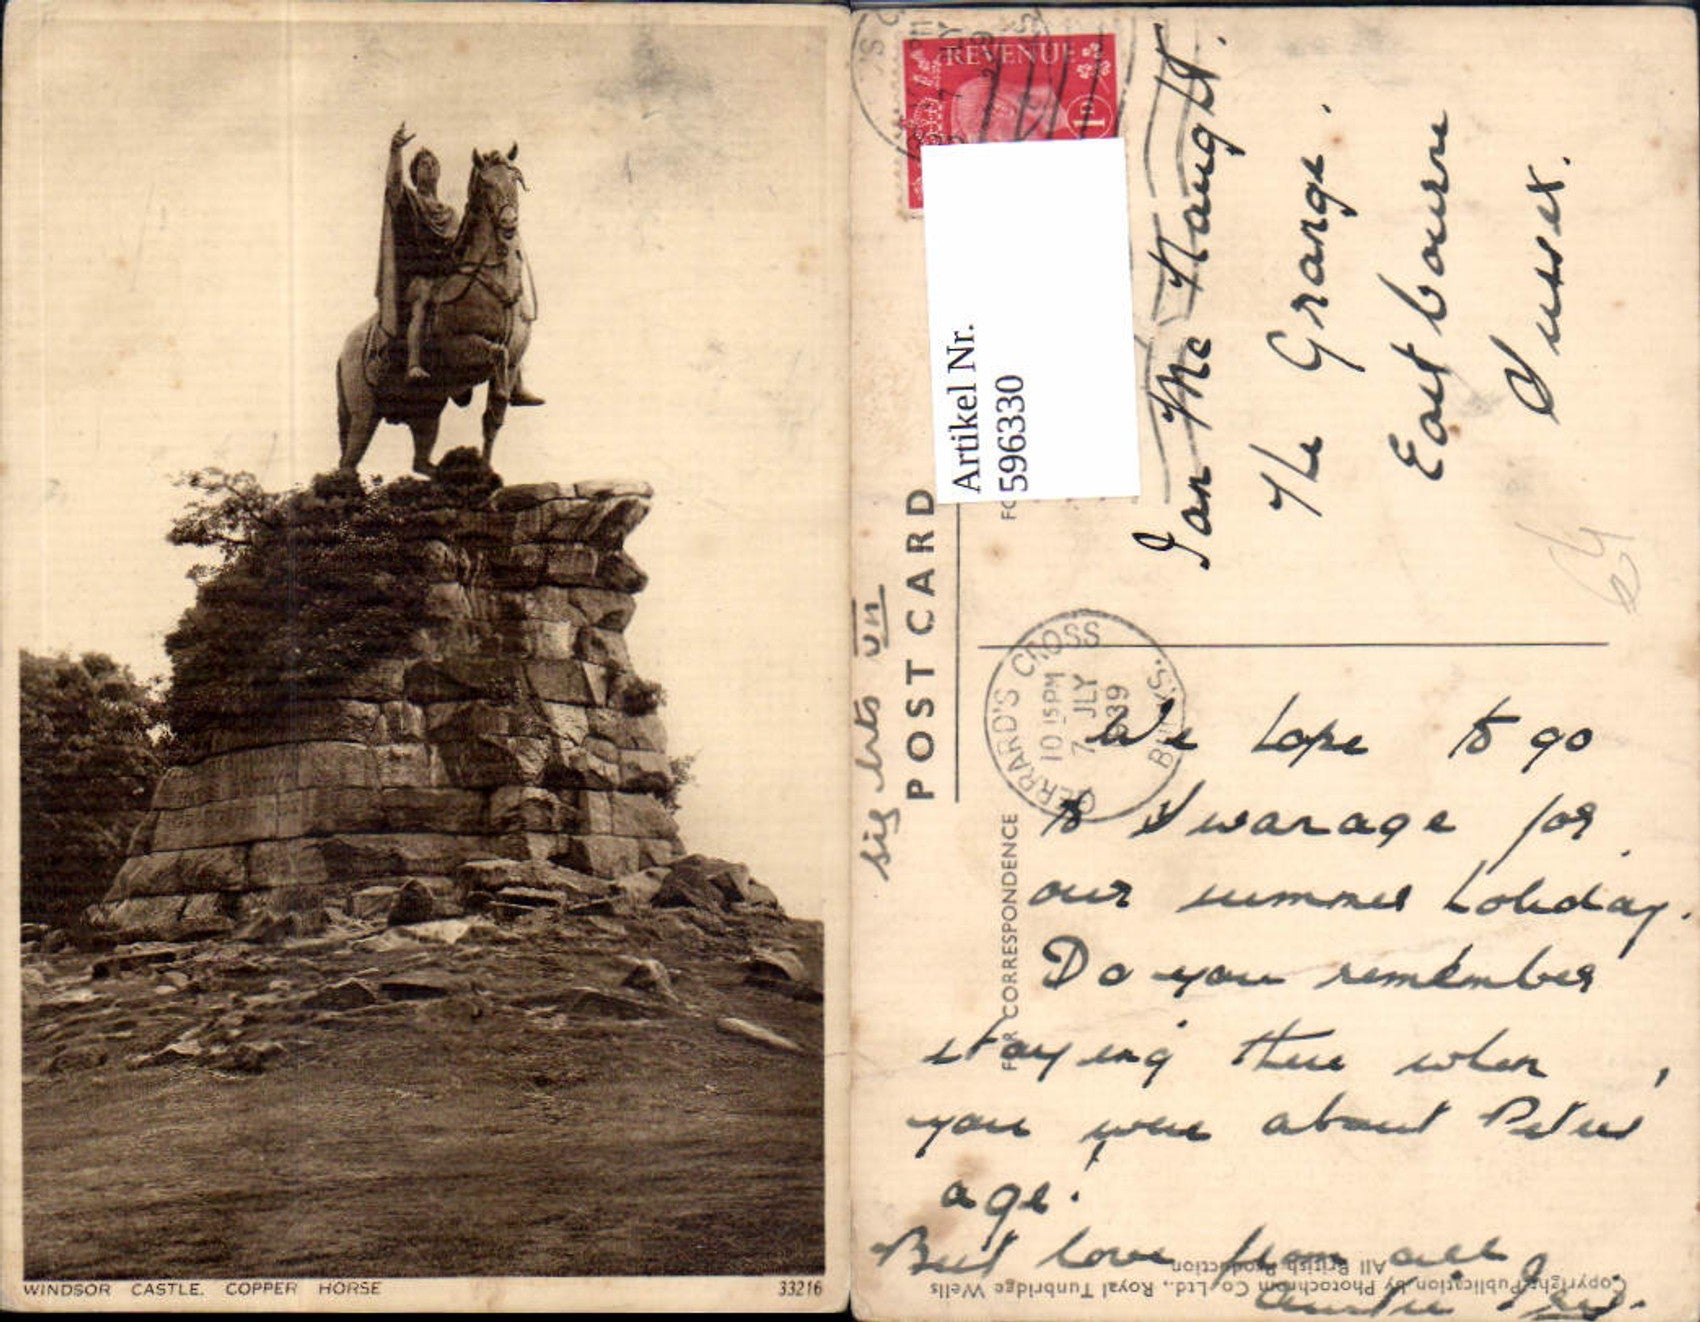 WINDSOR CASTLE. COPPER HORSE
33216
REVENUE
1D
Artikel Nr.
596330
POST CARD
FOR CORRESPONDENCE
GERRARD'S CROSS
BUCKS.
10 15 PM
7 JLY
39
Ian McNaught.
The Grange.
Eastbourne
Sussex.
64
We hope to go
to Swanage for
our summer holiday.
Do you remember
staying there when
you were about Peters
age.
Best love from all
Auntie
Copyright Publication by Photochrom Co. Ltd., Royal Tunbridge Wells
All British Production